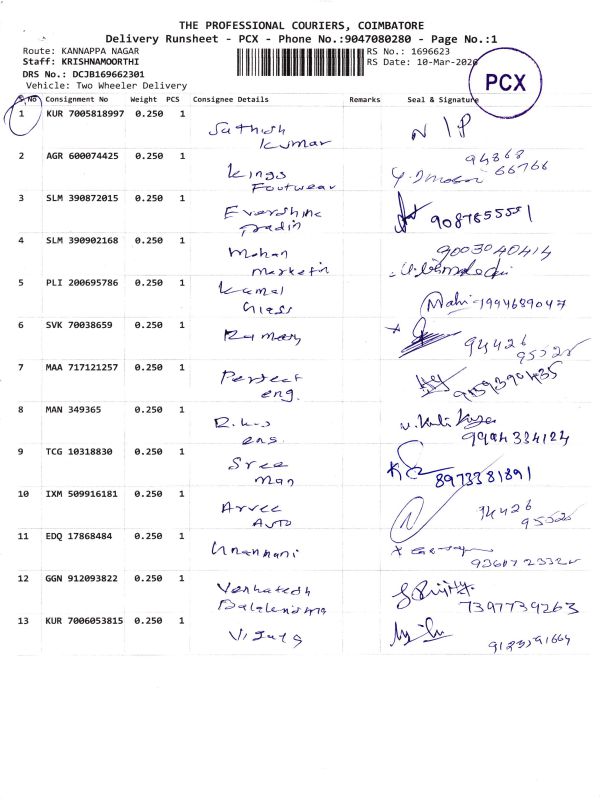 THE PROFESSIONAL COURIERS, COIMBATORE
Delivery Runsheet - PCX - Phone No.:9047080280 - Page No.:1
Route: KANNAPPA NAGAR
RS No.: 1696623
Staff: KRISHNAMOORTHI
RS Date: 10-Mar-2026
DRS No.: DCJB169662301
Vehicle: Two Wheeler Delivery
PCX
S.No Consignment No Weight PCS Consignee Details Remarks Seal & Signature
1 KUR 7005818997 0.250 1 Sathish N/P
Kumar
2 AGR 600074425 0.250 1 Kings 94868
Footwear 66766
3 SLM 390872015 0.250 1 Evershine
Tradin
4 SLM 390902168 0.250 1 Mohan 9003040414
Marketin
5 PLI 200695786 0.250 1 Kamal
Glass Mahi-1994689047
6 SVK 70038659 0.250 1 94426
95525
7 MAA 717121257 0.250 1 Perfect
eng.
8 MAN 349365 0.250 1
eng. 9994334124
9 TCG 10318830 0.250 1 Sree
Man 8973381891
10 IXM 509916181 0.250 1 Arvee 94426
Auto 95525
11 EDQ 17868484 0.250 1
12 GGN 912093822 0.250 1 Venkatesh
7397739263
13 KUR 7006053815 0.250 1